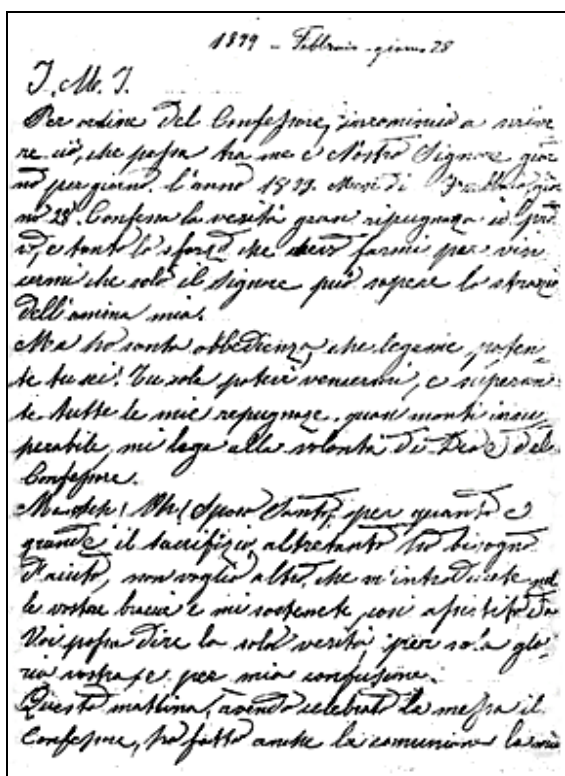 1899 - Febbraio - giorno 28
J. M. J.
Per ordine del Confessore, incomincio a scrive
re ciò, che passa tra me e Nostro Signore gior
no per giorno. l'anno 1899. Mese di Febbraio, gior
no 28. Confesso la verità gran ripugnanza io pro
vo, è tanto lo sforzo che devo farmi per vin
cermi che solo il Signore può sapere lo strazio
dell'anima mia.
Ma ho santa obbedienza, che legame poten
te tu sei! Tu sola potevi vincermi, e superan
te tutte le mie repugnaze, quasi monti insu
perabile, mi lega alla volontà di Dio e del
Confessore.
Ma deh! Oh! Sposo Santo, per quanto è
grande il sacrifizio, altretanto ho bisogno
d'aiuto, non voglio altro, che m'introduciate nel
le vostre braccia e mi sostenete, così assistito da
Voi possa dire la sola verità, per sola glo
ria vostra, e per mia confusione.
Questa mattina, avendo celebrato la messa il
Confessore, ho fatto anche la comunione la mia